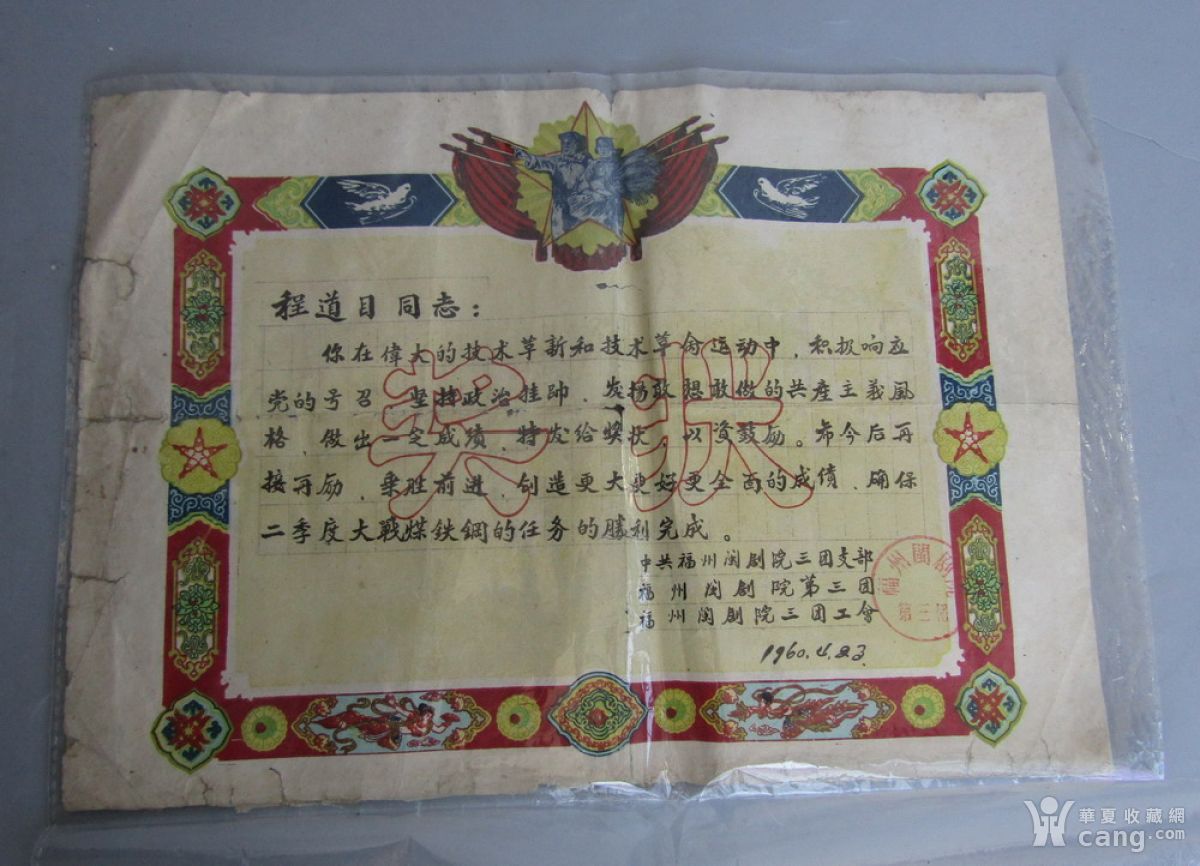 程道目同志：
你在偉大的技术革新和技术革命运动中，积极响应
党的号召，坚持政治挂帥，发扬敢想敢做的共產主義風
格，做出一定成绩，特发给奖状，以资鼓励。希今后再
接再励，乘胜前进，创造更大更好更全面的成绩，确保
二季度大戰煤鉄鋼的任务的勝利完成。
奖状
中共福州闽剧院三团支部
福州闽剧院第三团
福州闽剧院三团工會
1960.4.23
福州闽剧院
第三团
華夏收藏網
cang.com